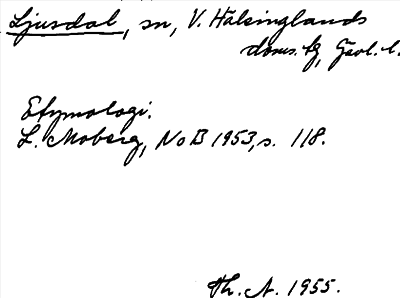 Ljusdal, sn, V. Hälsinglands
doms.tg, Gävl. l.
Etymologi.
L. Moberg, NoB 1953, s. 118.
Th. A. 1955.